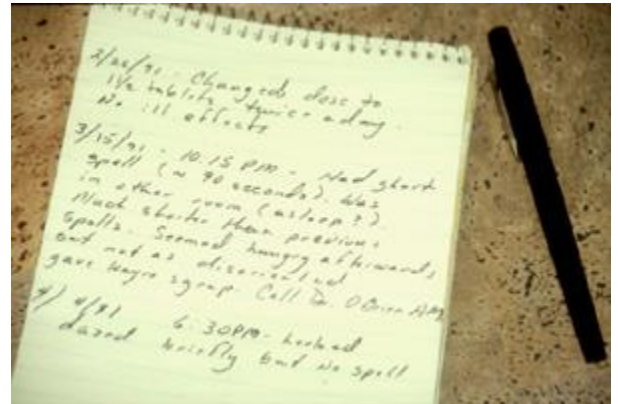 2/26/91 - Changed dose to
1 1/2 tablets twice a day.
No ill effects
3/15/91 - 10:15 PM - Had short
spell (≈ 90 seconds). Was
in other room (asleep?).
Much shorter than previous
spells. Seemed hungry afterwards
but not as disoriented
gave Kayro syrup. Call Dr. O'Brien AM
4/4/91 6:30 PM - looked
dazed briefly but no spell